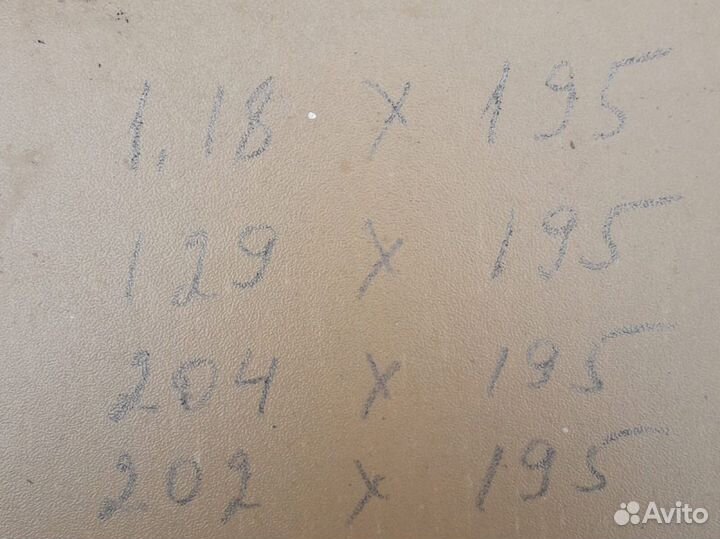 1,18 x 195
129 x 195
204 x 195
202 x 195
Avito